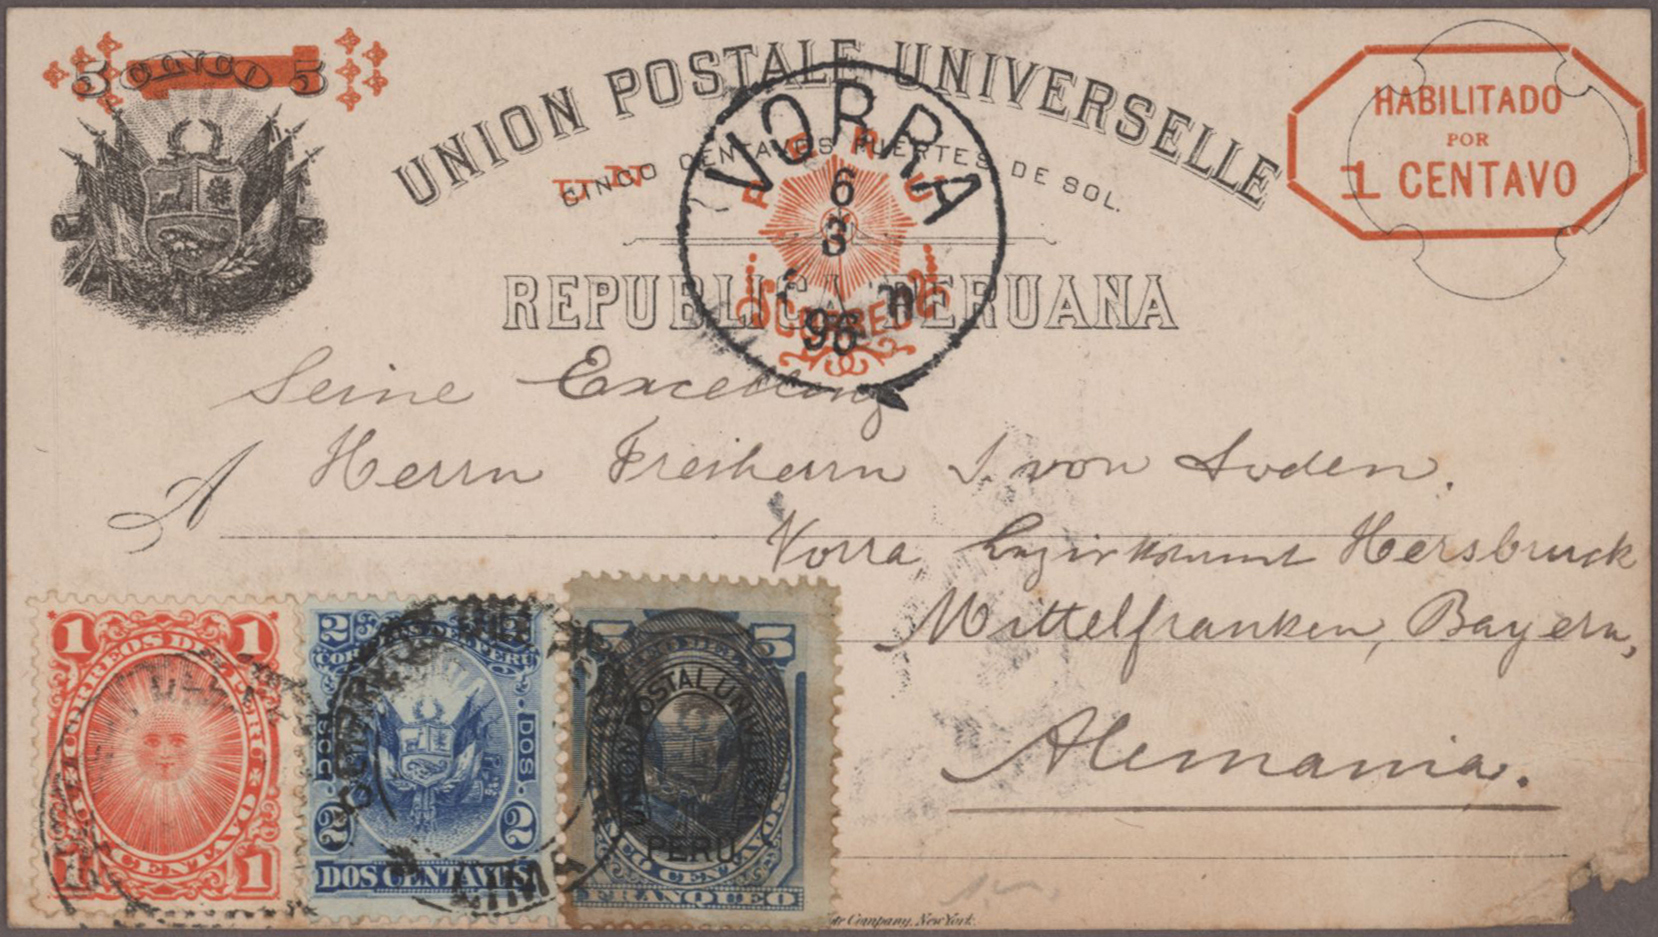 5 CINCO 5
UNION POSTALE UNIVERSELLE
CINCO CENTAVOS FUERTES DE SOL.
UN
REPUBLICA PERUANA
HABILITADO
POR
1 CENTAVO
VORRA
6
3
96
PERU
Seine Excellenz
A Herrn Freiherrn J. von Soden.
Vorra Hersbruck
Mittelfranken, Bayern,
Alemania.
1 1
CORREOS DEL PERU
UN CENTAVO
1 1
2
CORREOS DEL PERU
DOS DOS
2 2
DOS CENTAVOS
LIMA
5 5
UNION POSTAL UNIVERSAL
PERU
CINCO CENTAVOS
FRANQUEO
Company, New York.